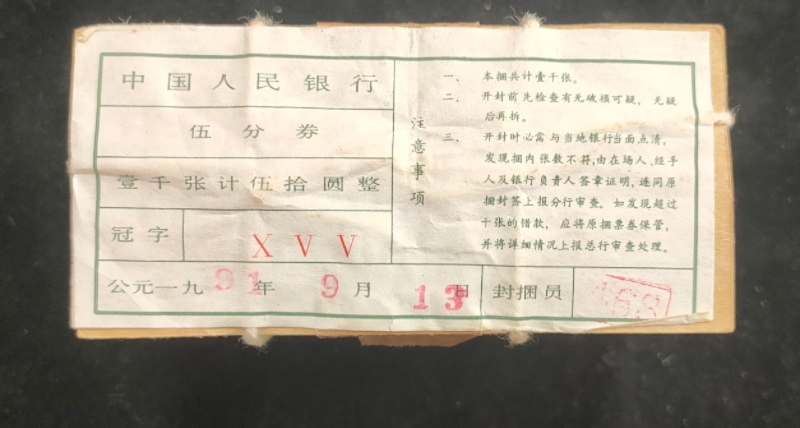 中国人民银行
伍分券
壹千张计伍拾圆整
冠字 XVV
公元一九91年9月13日 封捆员 468
注意事项
一、本捆共计壹千张。
二、开封前先检查有无破损可疑，无疑
后再拆。
三、开封时必需与当地银行当面点清，
发现捆内张数不符，由在场人、经手
人及银行负责人签章证明，连同原
捆封签上报分行审查。如发现超过
十张的借款，应将原捆票券保管，
并将详细情况上报总行审查处理。